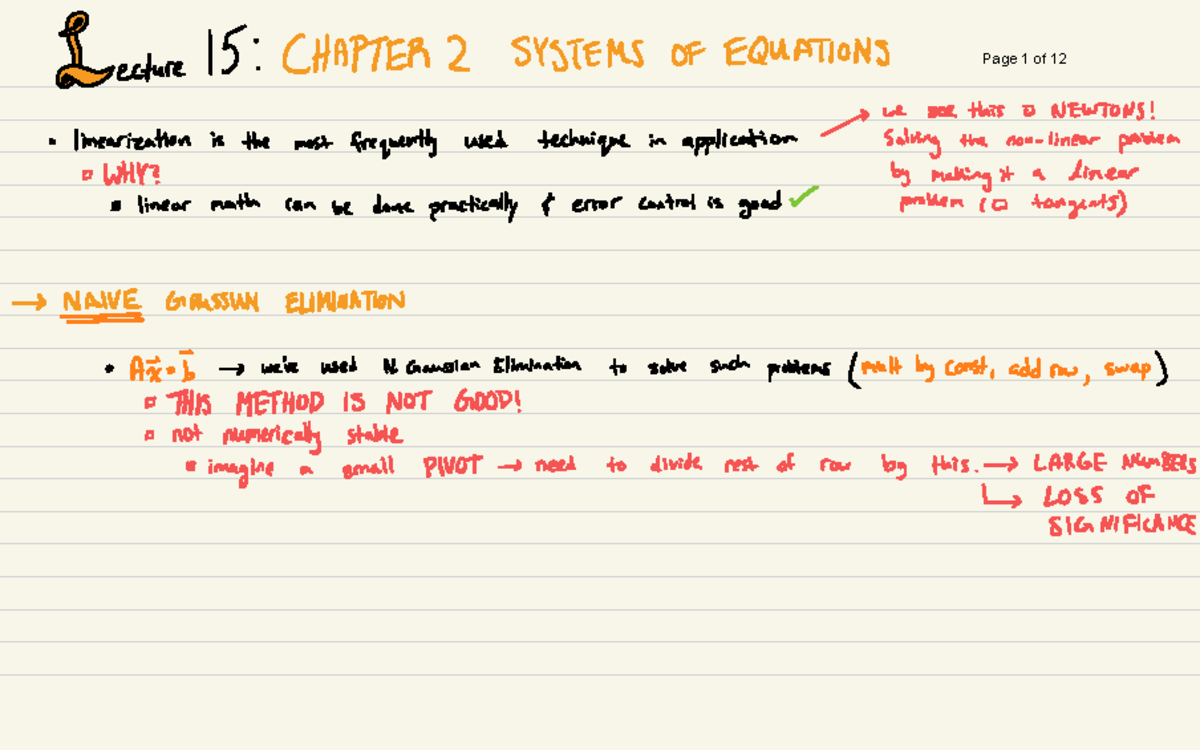 Lecture 15: CHAPTER 2 SYSTEMS OF EQUATIONS
Page 1 of 12
• linearization is the most frequently used technique in application
→ we see this □ NEWTONS!
Solving the non-linear problem
by making it a linear
problem (□ tangents)
□ WHY?
▪ linear math can be done practically & error control is good ✓
→ NAIVE GAUSSIAN ELIMINATION
• Ax⃗=b⃗ → we've used N. Gaussian Elimination to solve such problems (mult by const, add row, swap)
□ THIS METHOD IS NOT GOOD!
□ not numerically stable
▪ imagine a small PIVOT → need to divide rest of row by this. → LARGE NUMBERS
↳ LOSS OF
SIGNIFICANCE